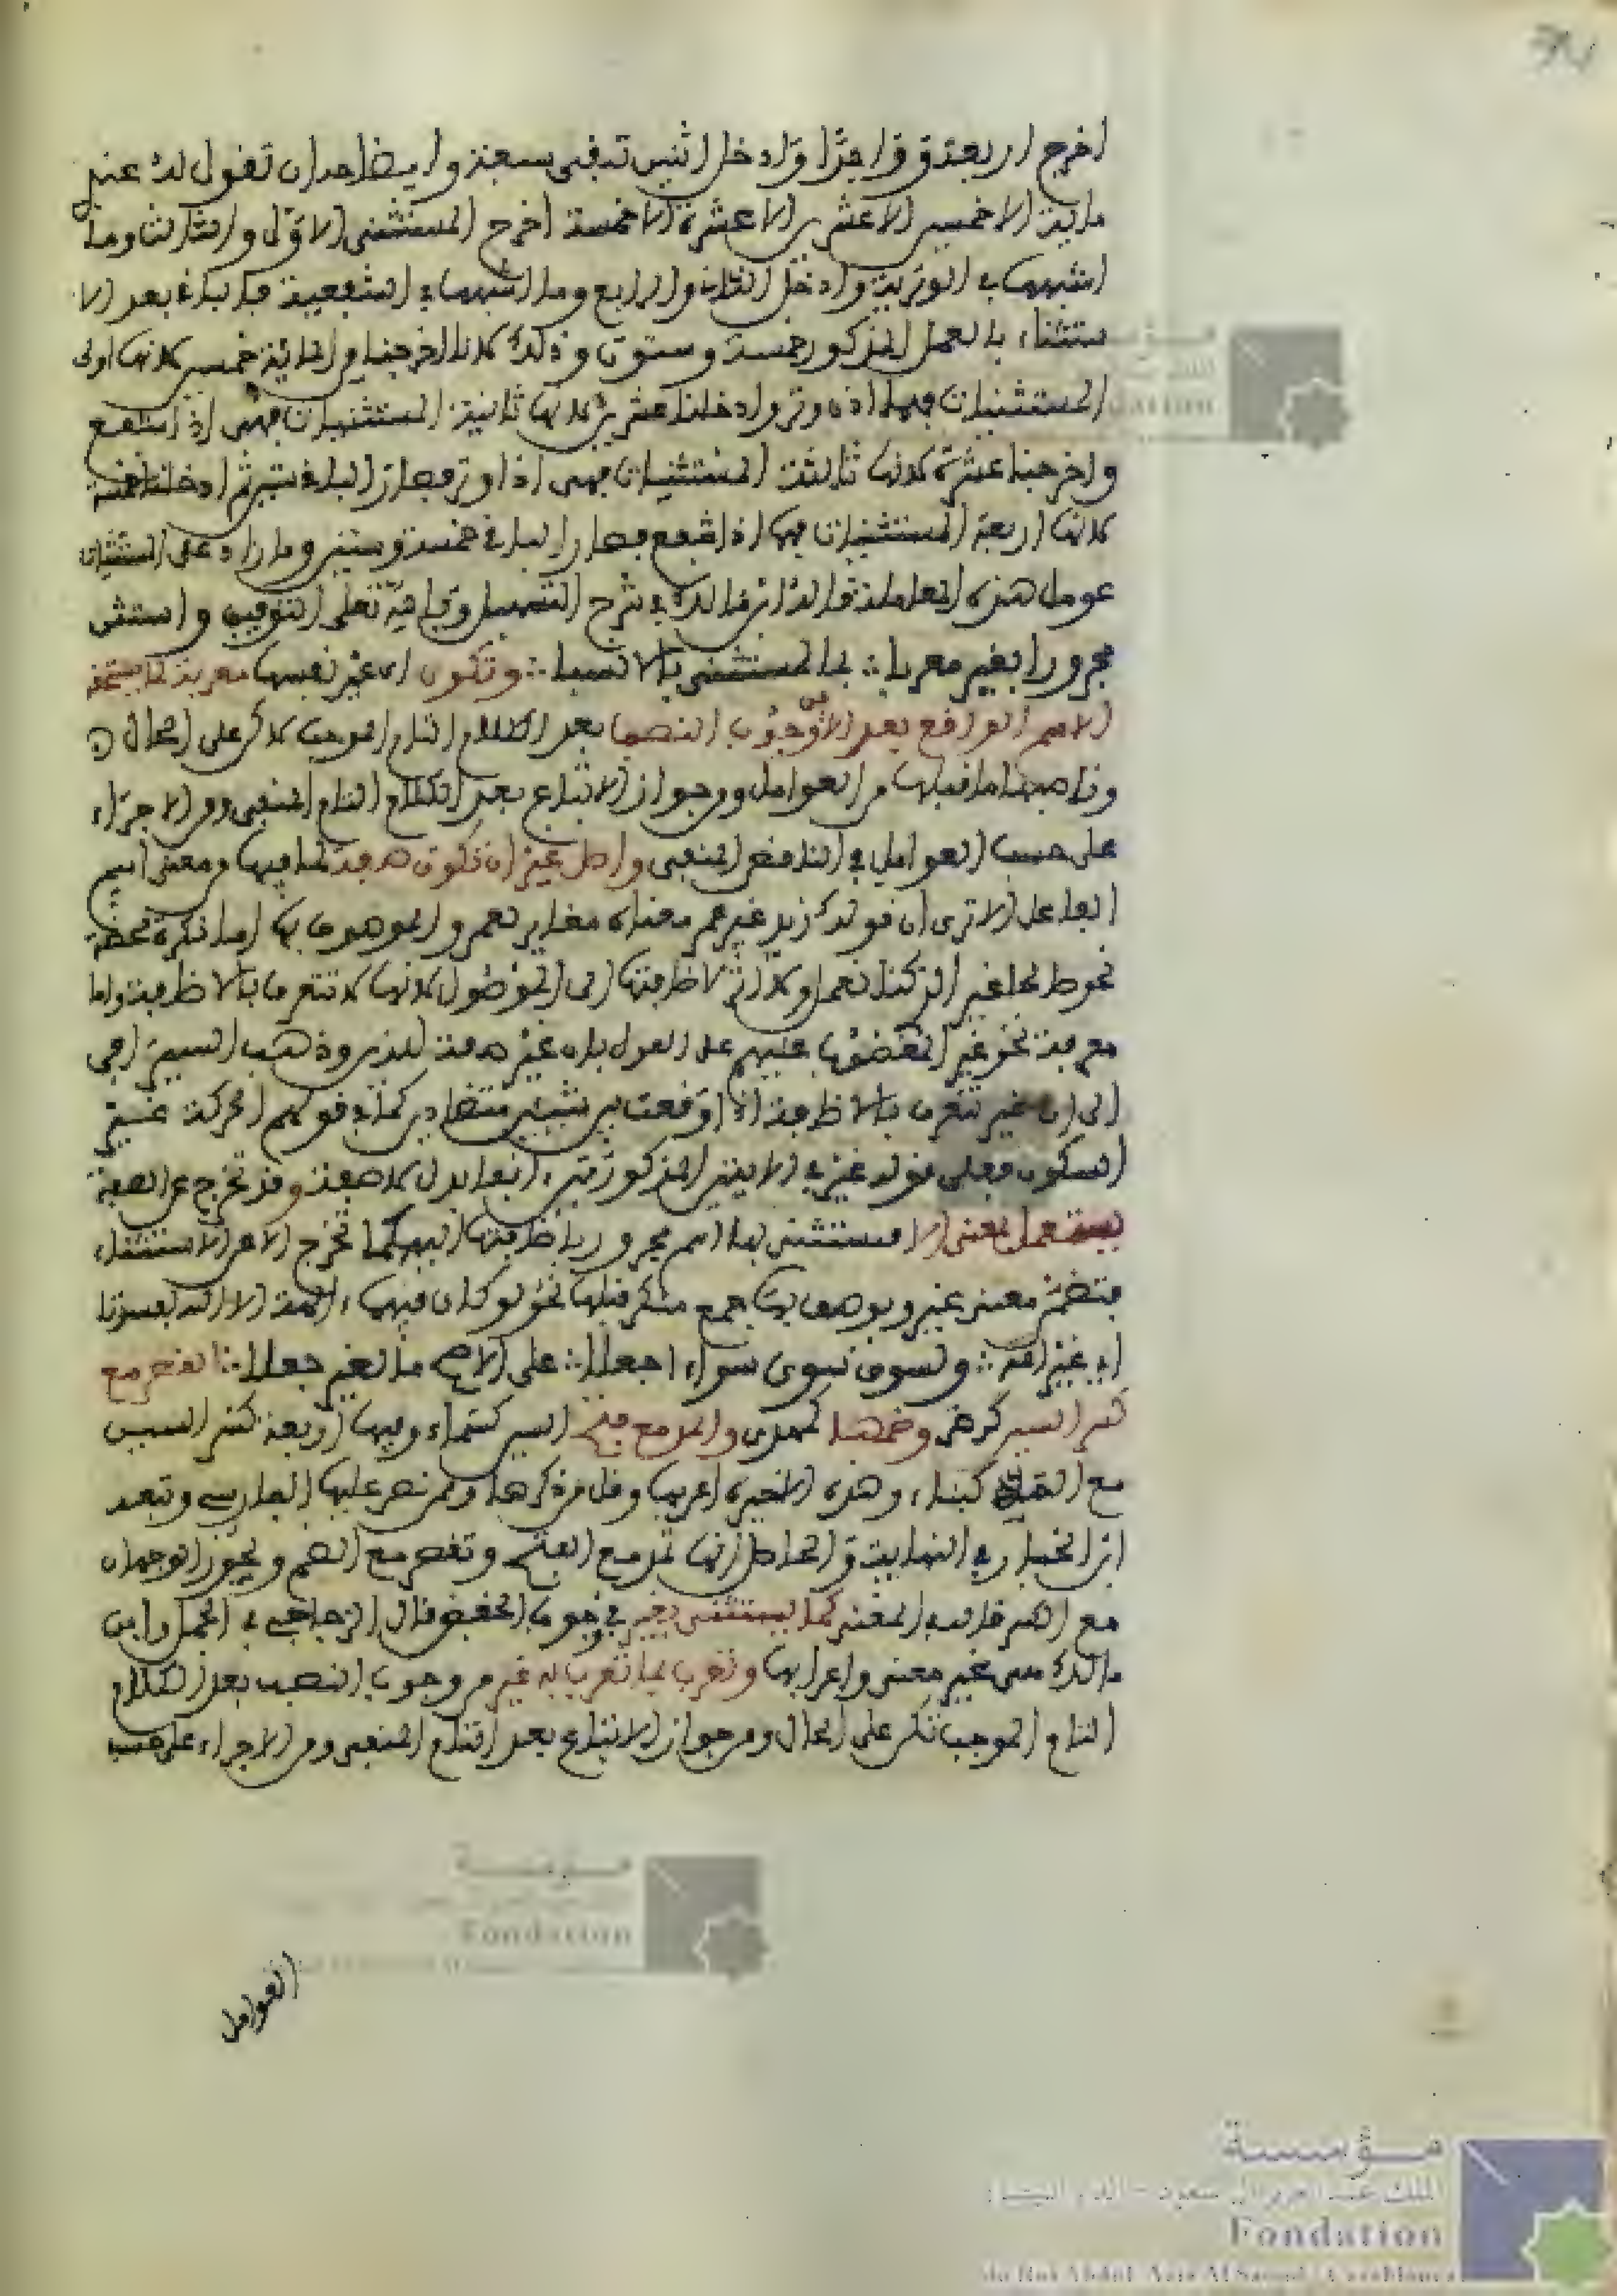 اخرج اربعة وواحدا وادخل اثنين تبقى سبعة وايضاحه ان تقول له عندي
ماية الا خمسين الا عشرين الا عشرة الا خمسة اخرج المستثنى الاول والثالث وما
اشبههما في الوترية وادخل الثاني والرابع وما اشبههما في الشفعية فالباقي بعد الا
ستثناء بالعمل المذكور خمسة وستون وذلك لانا اخرجنا من الماية خمسين لانها اولى
المستثنيات فهي اذن وتر وادخلنا عشرين لانها ثانية المستثنيات فهي اذا شفع
واخرجنا عشرة لانها ثالثة المستثنيات فهي اذا وتر فصار الباقي ستين ثم ادخلنا خمسة
لانها اربعة المستثنيات فهي اذا شفع فصار الباقي خمسة وستين وما زاد على المستثنيات
عومل هذه المعاملة قاله ابن مالك في شرح التسهيل وبالله تعلى التوفيق واستثن
مجرورا بغير معربا ∴ بما لمستثنى بالا نسبا ∴ وتكون اي غير نفسها معربة بما يستحقه
الاسم الواقع بعد الا من وجوب النصب بعد الكلام التام الموجب لاكن على الحال
وناصبها ما قبلها من العوامل ومن جواز الاتباع بعد الكلام التام المنفي ومن الاجراء
على حسب العوامل في الناقص المنفي واصل غير ان تكون صفة لما فيها من معنى اسم
الفاعل الا ترى ان قولك زيد غير عمر معناه مغاير لعمر والموصوف بها اما نكرة محضة
نحو صالحا غير الذي كنا نعمل ولا اثر لاضافتها الى الموصول لانها لا تتعرف بالاضافة واما
معرفة نحو غير المغضوب عليهم على القول بان غير صفة للذين وذهب السيرافي
الى ان غير تتعرف بالاضافة اذا وقعت بين شيئين متضادين كما في قولهم الحركة غير
السكون فعلى قوله غير في الايتين المذكورتين انها بدل لا صفة وقد تخرج عن الصفة
يستعمل بمعنى الا فيستثنى بها اسم مجرور باضافتها اليه كما تخرج الا عن الاستثناء
فتضمن معنى غير ويوصف بها جمع منكر قبلها نحو لو كان فيهما ءالهة الا الله لفسدتا
اي غير الله ∴ ولسوى سوى سواء اجعلا ∴ على الاصح ما لغير جعلا ∴ القصر مع
كسر السين كرضى وضمها كهدى والمد مع فتح السين كسماء وفيها اربعة كسر السين
مع المد كبناء وهذه الاخيرة اغربها وقل من ذكرها وممن نص عليها الفارسي وتبعه
ابن الخباز في النهاية والحاصل انها تمد مع الفتح وتقصر مع الضم ويجوز الوجهان
مع الكسر قاله في المغني كما يستثنى بغير في وجوب الخفض قال الزجاجي في الجمل وابن
مالك سوى غير معنى واعرابها وتعرب بما تعرب به غير من وجوب النصب بعد الكلام
التام الموجب لكن على الحال ومن جواز الاتباع بعد التام المنفي ومن الاجراء على حسب
العوامل
مؤسسة
الملك عبد العزيز آل سعود - الدار البيضاء
Fondation
du Roi Abdul-Aziz Al Saoud - Casablanca
مؤسسة
Fondation